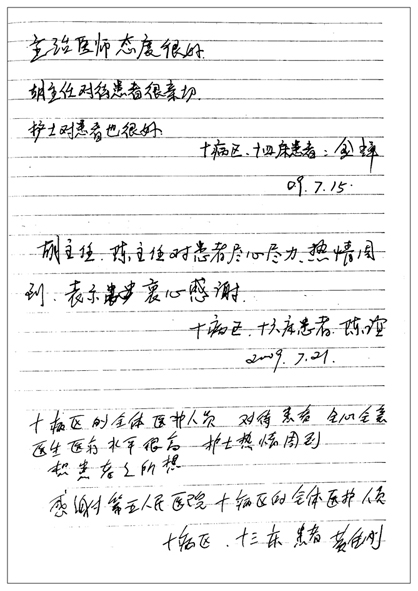 主治医师态度很好
胡主任对待患者很亲切
护士对患者也很好
十病区、十四床患者：金
09.7.15.
胡主任、陈主任对患者尽心尽力、热情周
到、表示衷心感谢.
十病区、十六床患者 陈谊
2009.7.21.
十病区的全体医护人员 对待患者 全心全意
医生医疗水平很高 护士热情周到
想患者之所想
感谢 第五人民医院十病区的全体医护人员
十病区、十三床 患者 黄